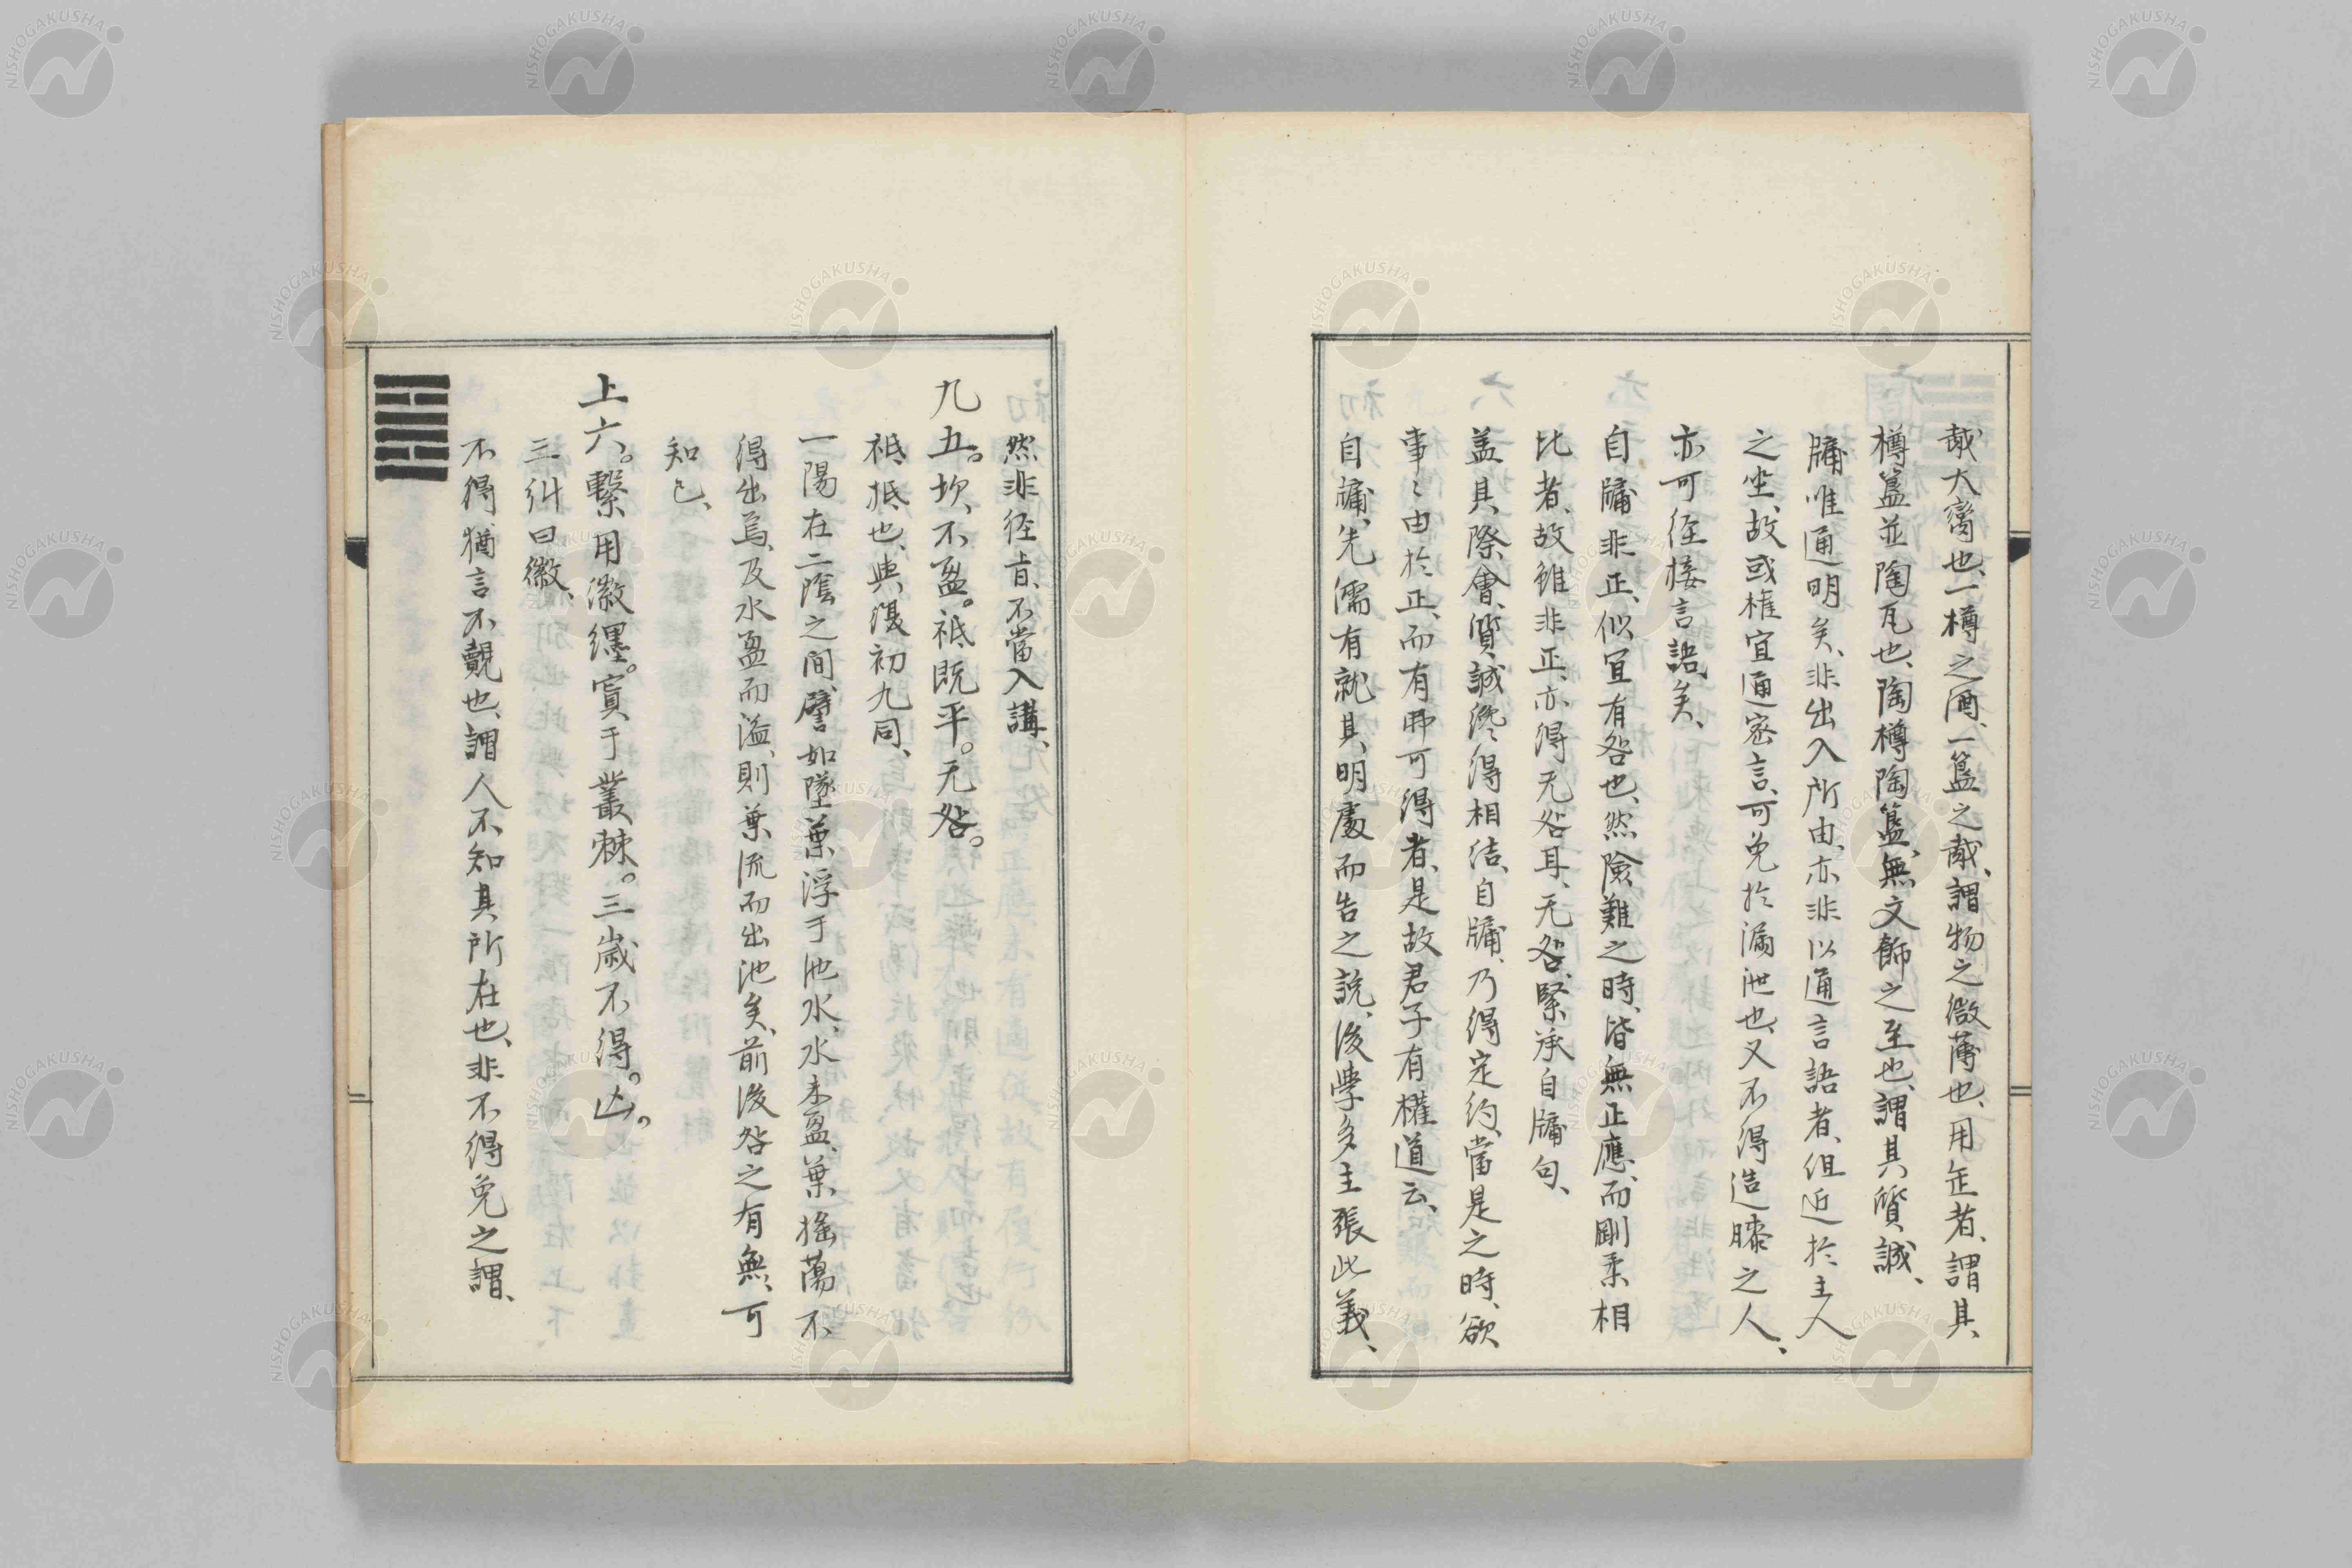 胾大臠也、一樽之酒、一簋之胾、謂物之微薄也、用缶者、謂其
樽簋並陶瓦也、陶樽陶簋、無文飾之至也、謂其質誠、
牖唯通明矣、非出入所由、亦非以通言語者、但近於主人
之坐、故或権宜通密言、可免於漏泄也、又不得造膝之人、
亦可径接言語矣、
自牖非正、似宜有咎也、然險難之時、皆無正應、而剛柔相
比者、故雖非正、亦得无咎耳、无咎、緊承自牖句、
盖其際會、質誠纔得相結、自牖、乃得定約、當是之時、欲
事〻由於正、而有弗可得者、是故君子有權道云、
自牖、先儒有就其明處而告之説、後學多主張此義、
然非径旨、不當入講、
九五。坎、不盈。祗既平。无咎。
祗、抵也、與復初九同、
一陽在二陰之間、譬如墜葉浮于池水、水未盈、葉搖蕩不
得出焉、及水盈而溢、則葉流而出池矣、前後咎之有無、可
知已、
上六。繫用徽纆。寘于叢棘。三歳不得。凶。
三糾曰徽、
不得猶言不覿也、謂人不知其所在也、非不得免之謂、
NISHOGAKUSHA